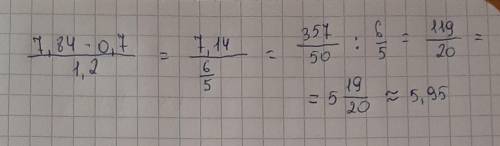 7,84 - 0,7 / 1,2 = 7,14 / 6/5 = 357/50 : 6/5 = 119/20 =
= 5 19/20 ≈ 5,95